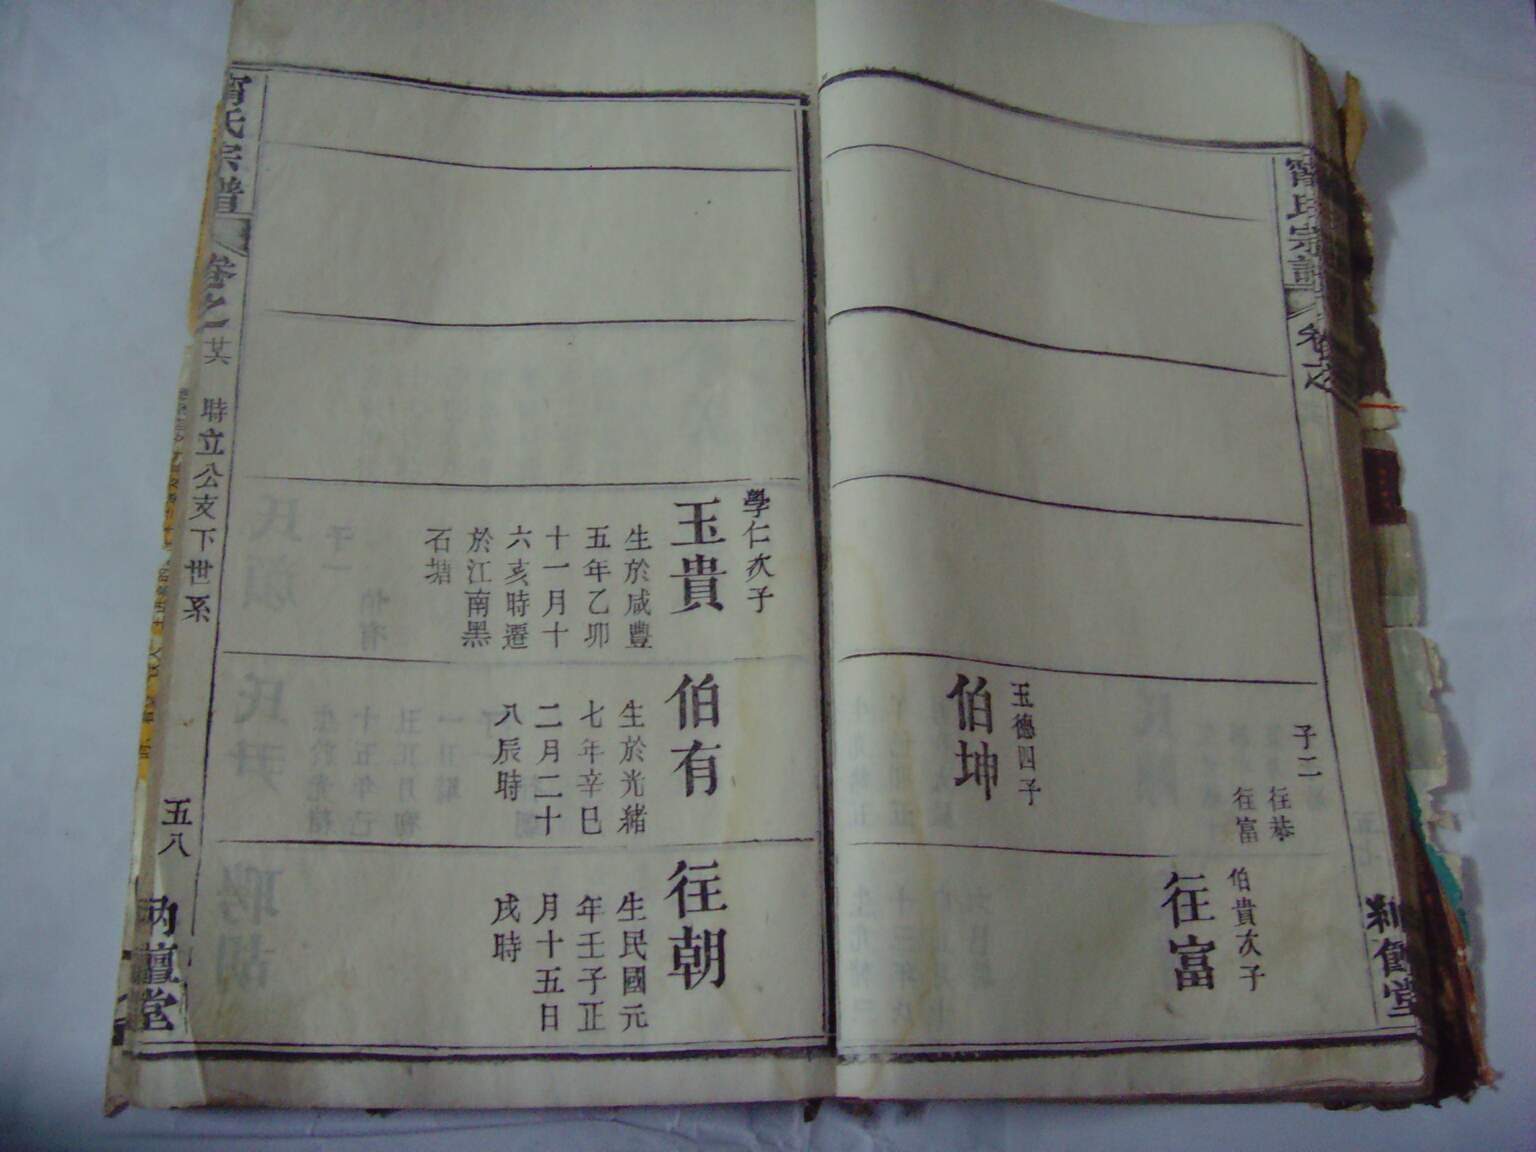 甯氏宗譜
卷之
子二
往恭
往富
伯貴次子
往富
玉德四子
伯坤
學仁次子
玉貴
生於咸豐
五年乙卯
十一月十
六亥時遷
於江南黑
石塘
伯有
生於光緒
七年辛巳
二月二十
八辰時
往朝
生民國元
年壬子正
月十五日
戌時
甯氏宗譜
卷之一
時立公支下世系
五八